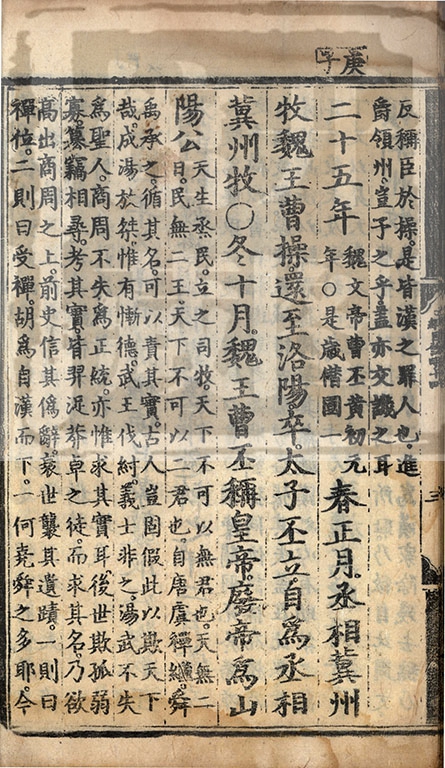 庚子
反稱臣於操。是皆漢之罪人也。進
爵領州。豈予之乎。蓋亦交譏之耳
二十五年 魏文帝曹丕黃初元年○是歲僭國一 春正月。丞相冀州
牧魏王曹操。還至洛陽。卒。太子丕立。自爲丞相
冀州牧○冬十月。魏王曹丕稱皇帝。廢帝爲山
陽公 天生烝民。立之司牧。天下不可以無君也。天無二
日。民無二王。天下不可以二君也。自唐虞禪繼。舜
禹承之。循其名。可以責其實。古人豈固假此以欺天下
哉。成湯放桀。惟有慚德。武王伐紂。義士非之。湯武不失
爲聖人。商周不失爲正統。亦惟求其實耳。後世欺孤弱
寡。篡竊相尋。考其實。皆羿浞莽卓之徒。而求其名。乃欲
高出商周之上。前史信其僞辭。衰世襲其遺蹟。一則曰
禪位。二則曰受禪。胡爲自漢而下。一何堯舜之多耶。今